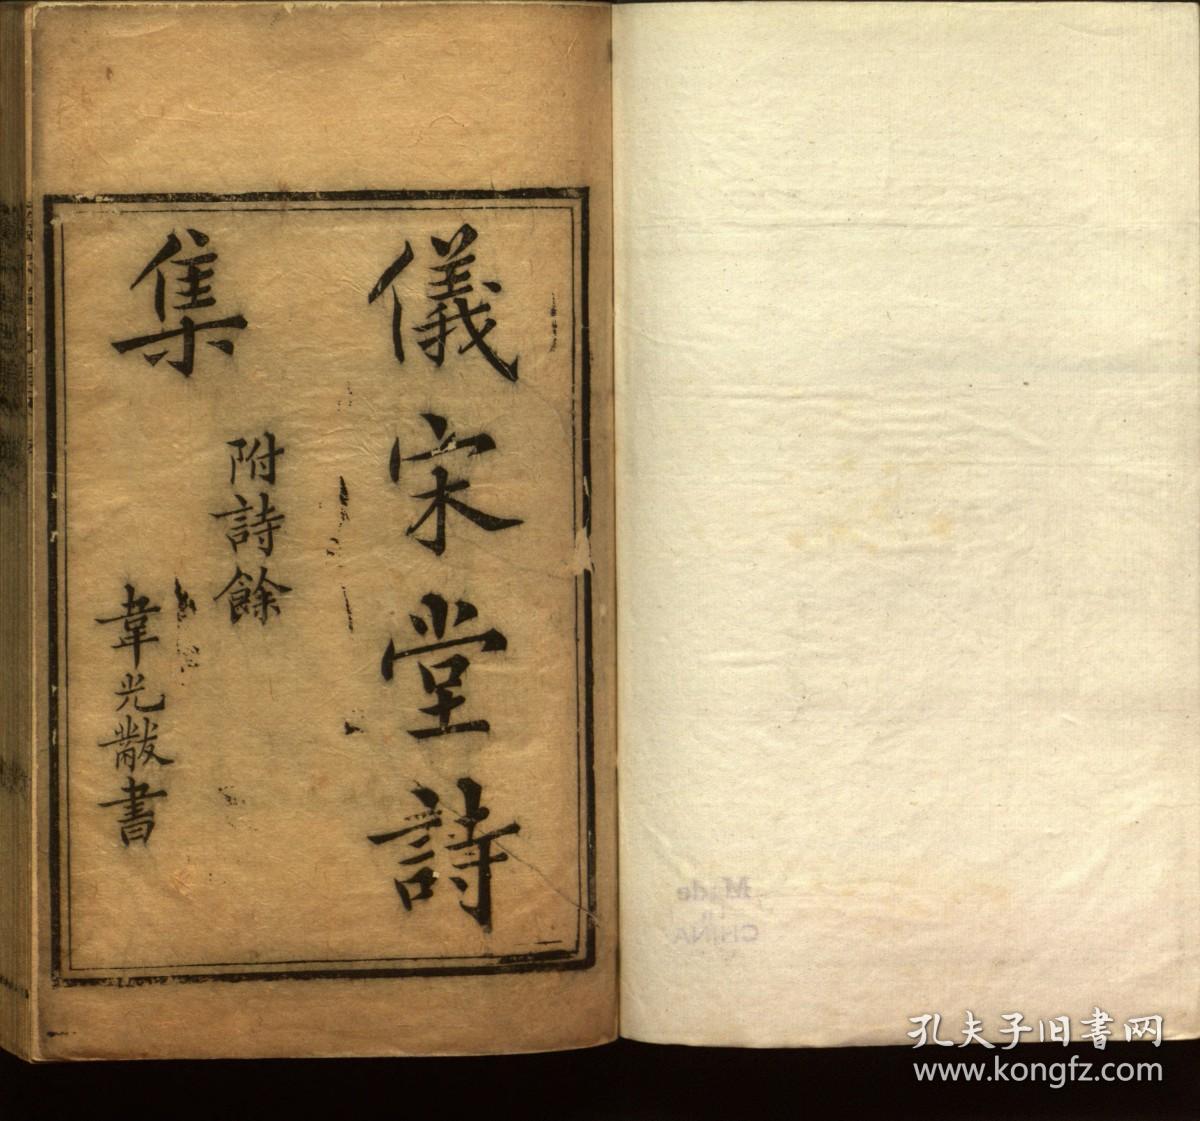 儀宋堂詩
集
附詩餘
韋光黻書
Made
IN
CHINA
孔夫子旧書网
www.kongfz.com